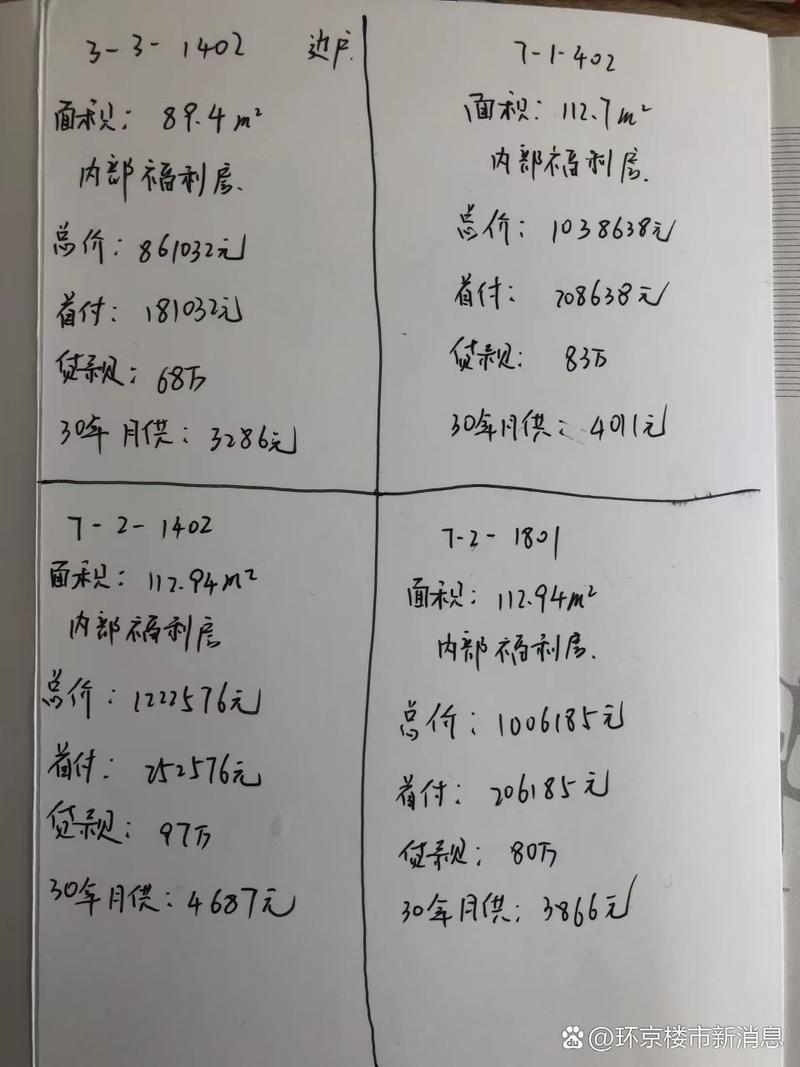 3-3-1402 边户
面积：89.4m²
内部福利房.
总价：861032元
首付：181032元
贷款：68万
30年月供：3286元
7-1-402
面积：112.7m²
内部福利房.
总价：1038638元
首付：208638元
贷款：83万
30年月供：4011元
7-2-1402
面积：112.94m²
内部福利房
总价：1222576元
首付：252576元
贷款：97万
30年月供：4687元
7-2-1801
面积：112.94m²
内部福利房.
总价：1006185元
首付：206185元
贷款：80万
30年月供：3866元
@环京楼市新消息